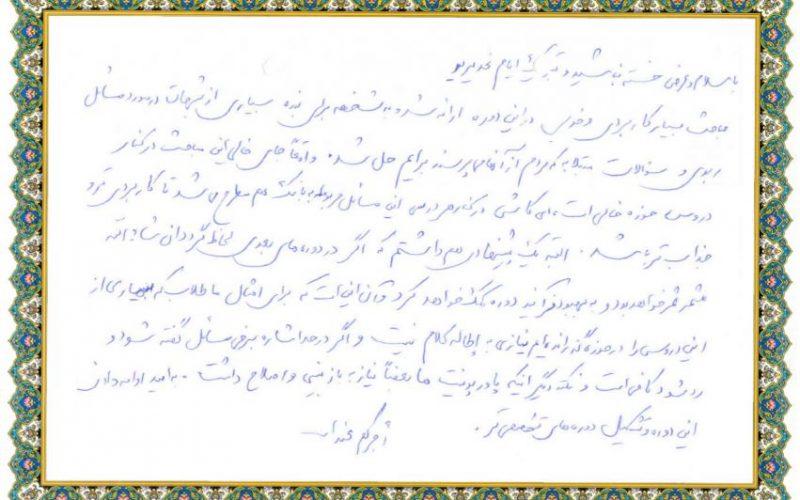 با سلام و عرض خسته نباشید و تبریک ایام غدیریه
مباحث بسیار کاربردی و خوبی در این دوره ارائه شد و به شخصه برای بنده بسیاری از شبهات در مورد مسائل
ربوی و سؤالات مبتلابه که مردم از آقا می‌پرسند برایم حل شد. واقعاً جای خالی این مباحث در کنار
دروس حوزه خالی است، ای کاش در کنار هر درس این مسائل مربوط به بانک هم مطرح می‌شد تا کاربردی‌تر و
جذاب‌تر باشد. البته یک پیشنهادی هم داشتم که اگر در دوره‌های بعدی لحاظ گردد ان شاءالله
مثمر ثمر خواهد بود و به بهبود فرآیند دوره کمک خواهد کرد و آن این است که برای امثال ما طلاب که بسیاری از
این دروس را در حوزه گذرانده‌ایم نیازی به اطاله کلام نیست و اگر در حد اشاره برخی مسائل گفته شود و
رد شود کافی است و نکته دیگر اینکه پاورپوینت‌ها بعضاً نیاز به بازبینی و اصلاح داشت. به امید ادامه دادن
این دوره و تشکیل دوره‌های تخصصی‌تر.
أجرکم عندالله